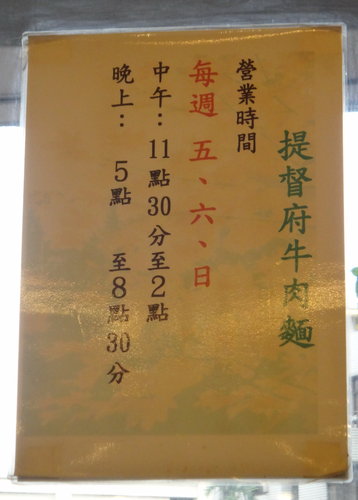 提督府牛肉麵
營業時間
每週 五、六、日
中午：11點30分至2點
晚上： 5點 至8點30分